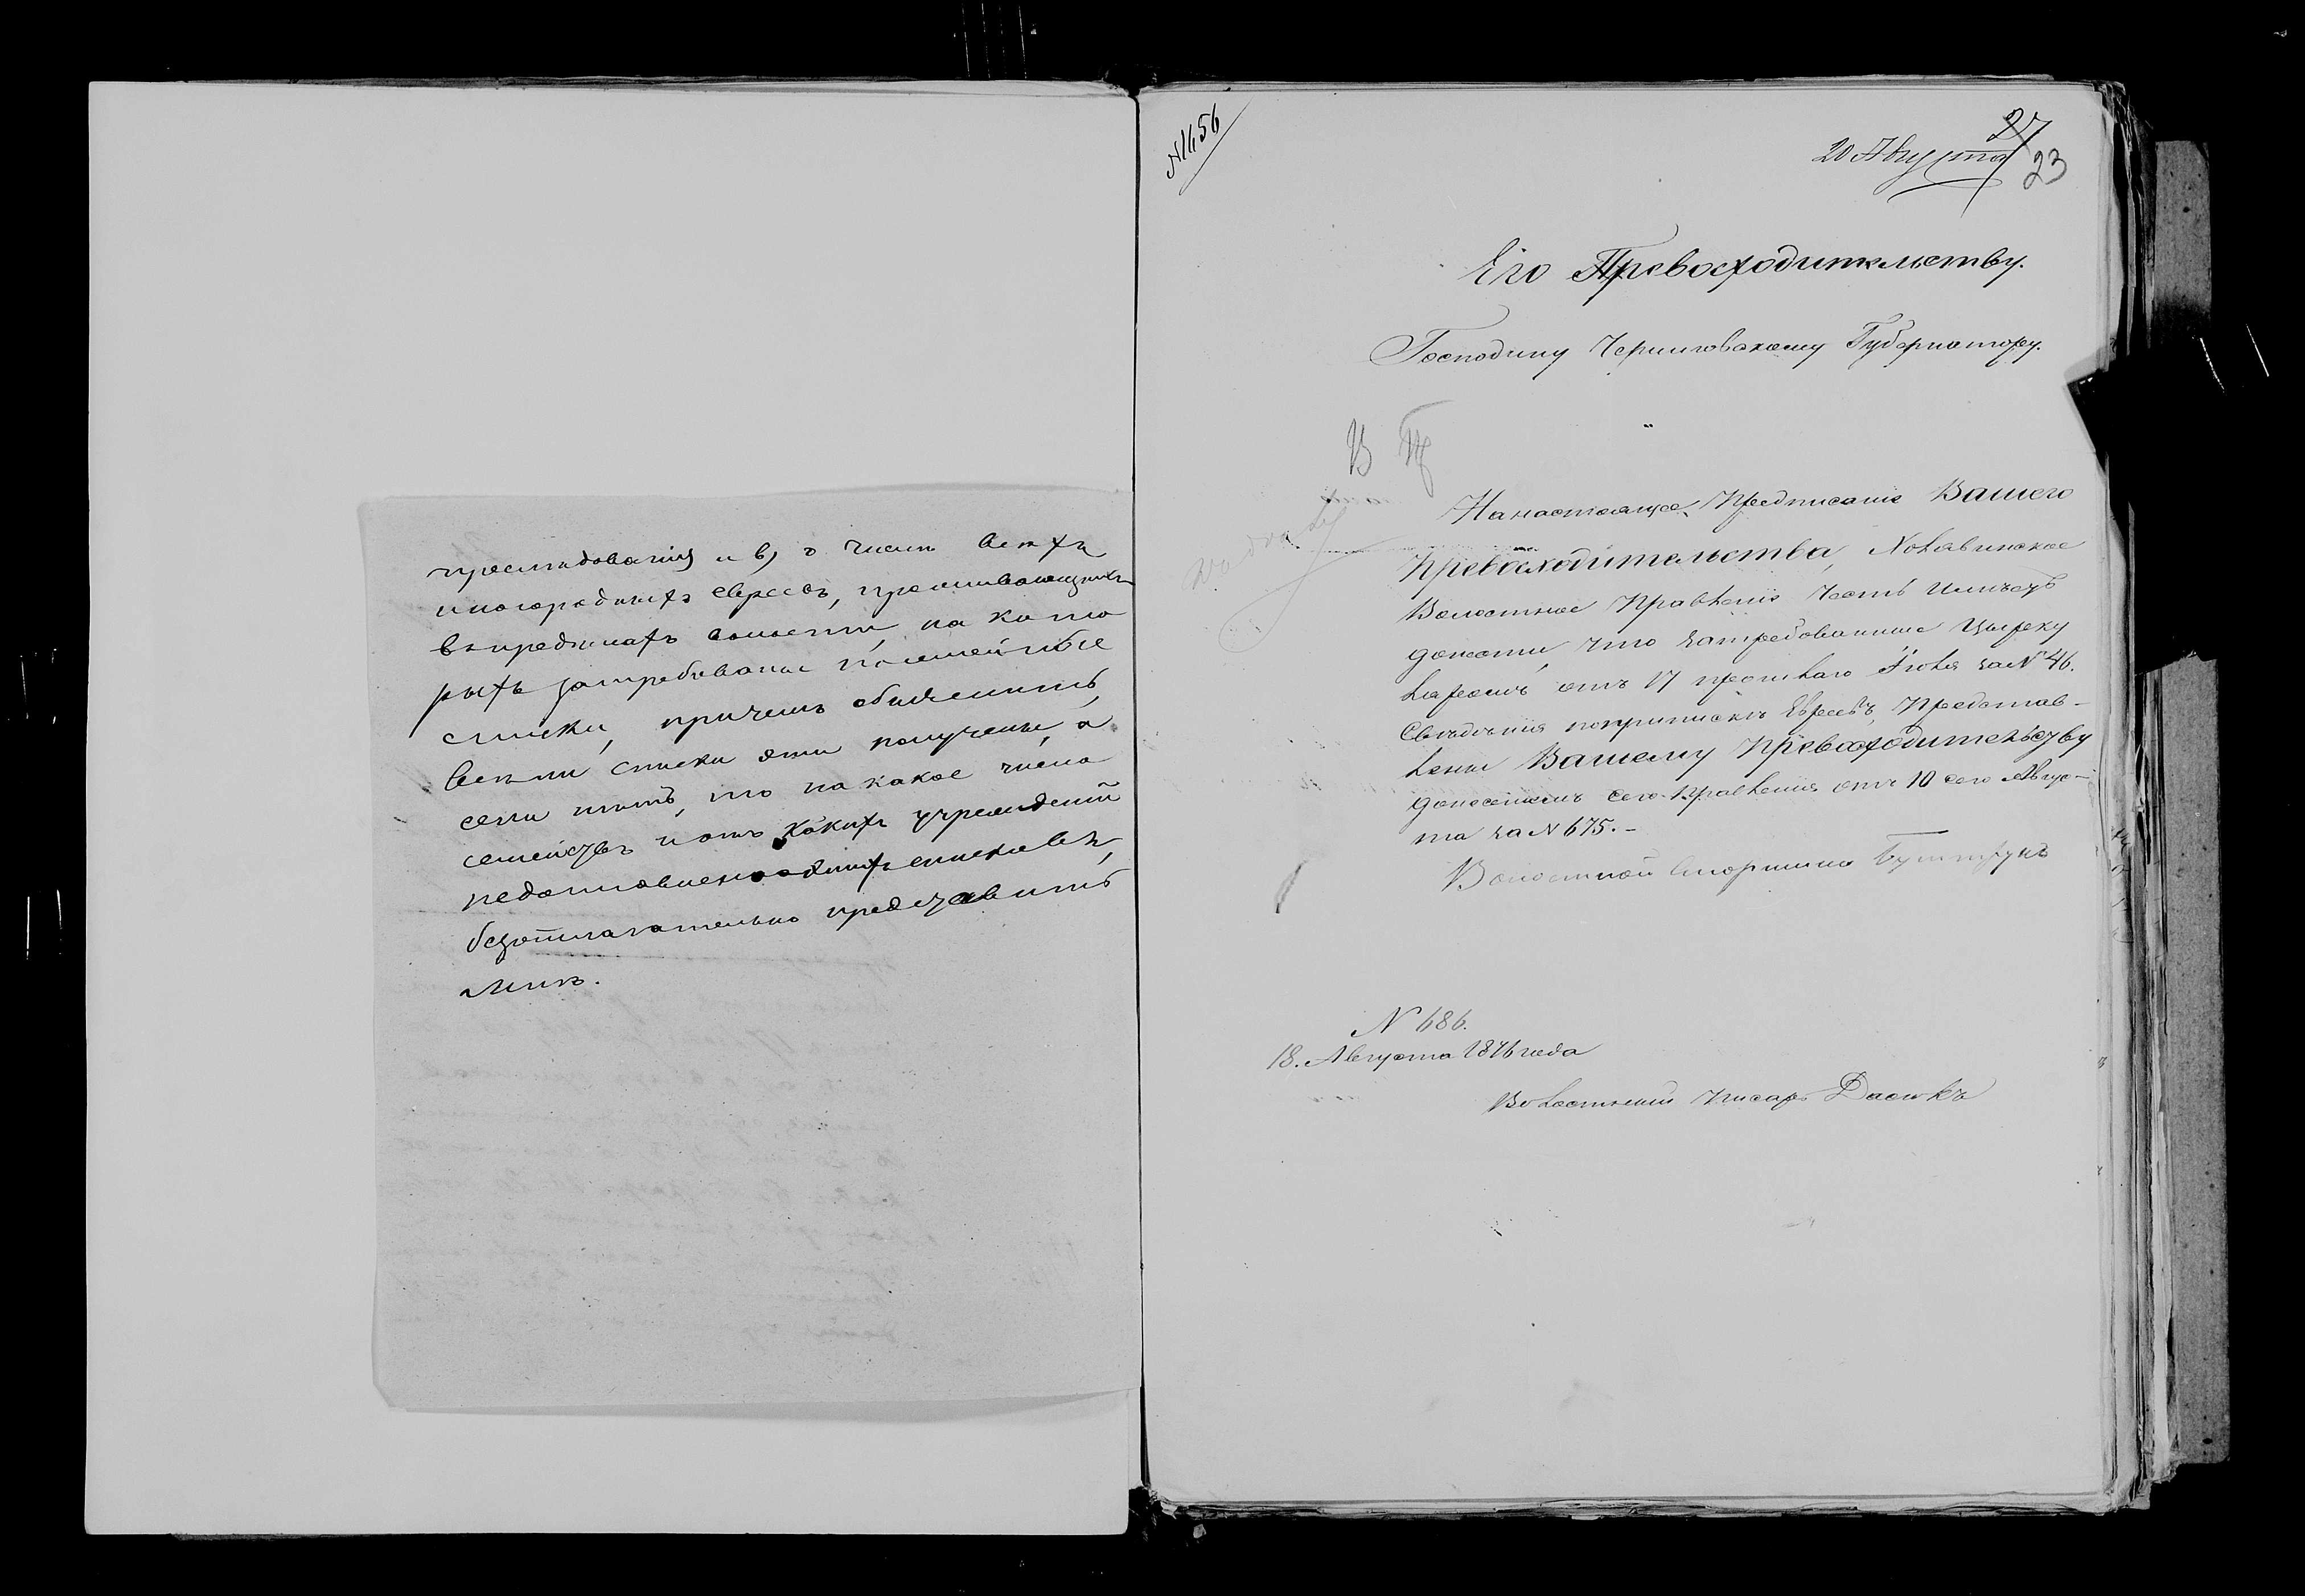 преслѣдованія и в) о числѣ всѣхъ
иногороднихъ евреевъ, проживающихъ
въ предѣлахъ волости, на кото
рыхъ затребованы посемейные
списки, причемъ объяснить,
всѣ ли списки эти получены, а
если нѣтъ, то на какое число
семействъ и отъ какихъ учрежденій
недоставленныхъ списковъ,
безотлагательно представить
мнѣ.
№ 1456
20 Августа
27
23
Его Превосходительству.
Господину Черниговскому Губернатору.
На настоящее Предписаніе Вашего
Превосходительства, Волостное Правленіе честь имѣетъ
донести, что затребованные Цирку
ляромъ отъ 17 прошлаго Іюля за № 46.
Свѣдѣнія о припискѣ Евреевъ, Представ-
лены Вашему Превосходительству
донесеніемъ сего Правленія отъ 10 сего Авгус-
та за № 675.-
Волостной Старшина
№ 686.
18. Августа 1876 года
Волостной Писарь